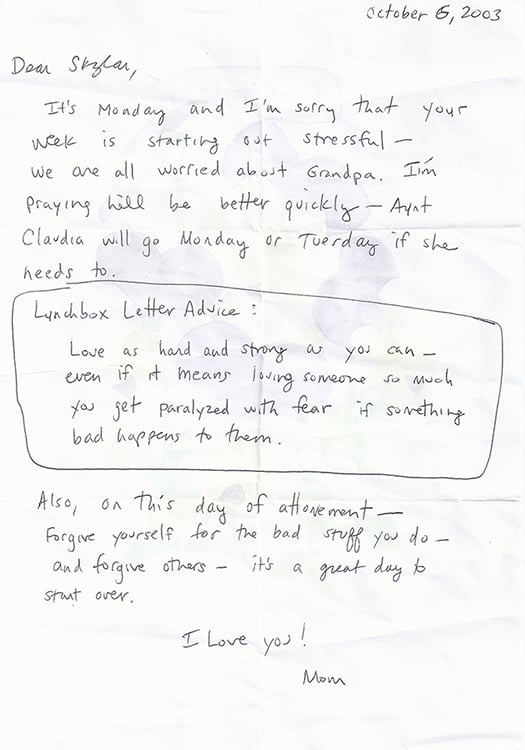 October 6, 2003
Dear Skylar,
It's Monday and I'm sorry that your
week is starting out stressful —
we are all worried about Grandpa. I'm
praying he'll be better quickly — Aunt
Claudia will go Monday or Tuesday if she
needs to.
Lunchbox Letter Advice:
Love as hard and strong as you can —
even if it means loving someone so much
you get paralyzed with fear if something
bad happens to them.
Also, on this day of atonement —
Forgive yourself for the bad stuff you do —
and forgive others — it's a great day to
start over.
I Love you!
Mom